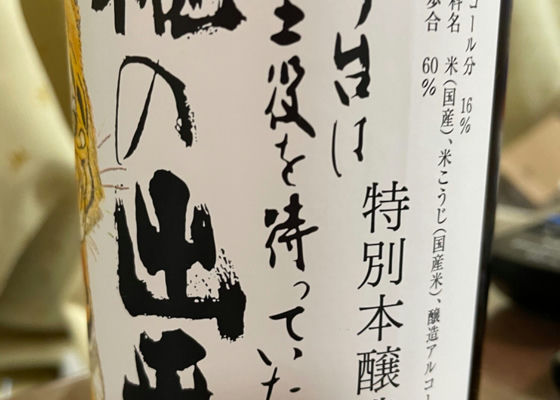 コール分 16%
料名 米(国産)、米こうじ(国産米)、醸造アルコー
歩合 60%
特別本醸
台は
主役を待っていた
の出